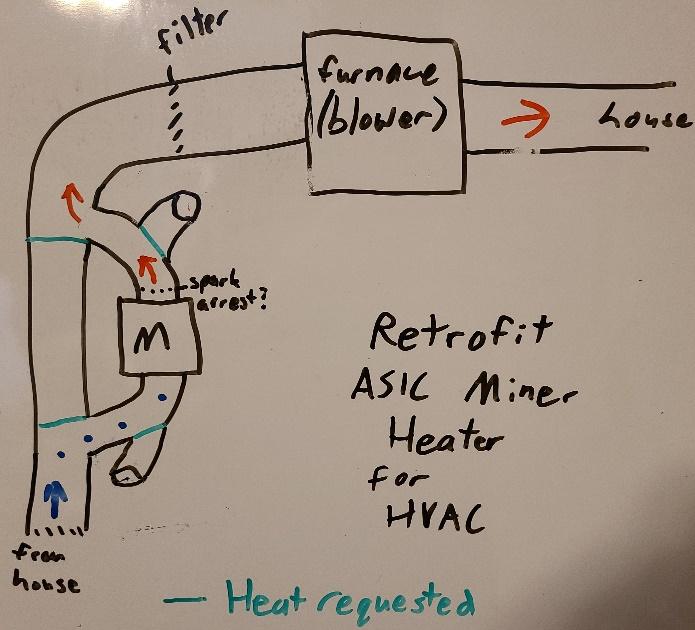 filter
furnace
(blower)
house
spark
arrest?
M
Retrofit
ASIC Miner
Heater
for
HVAC
from
house
— Heat requested